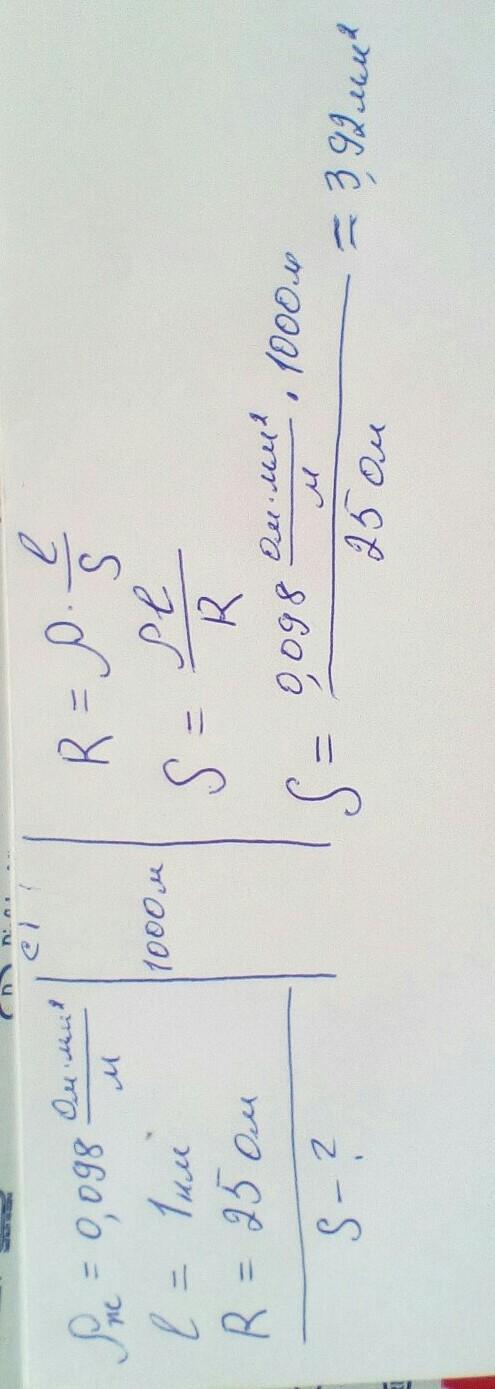 ρж = 0,098 Ом·мм²/м
l = 1км
R = 25 Ом
S - ?
СИ
1000м
R = ρ · l/S
S = ρl/R
S = 0,098 Ом·мм²/м · 1000м / 25 Ом = 3,92 мм²